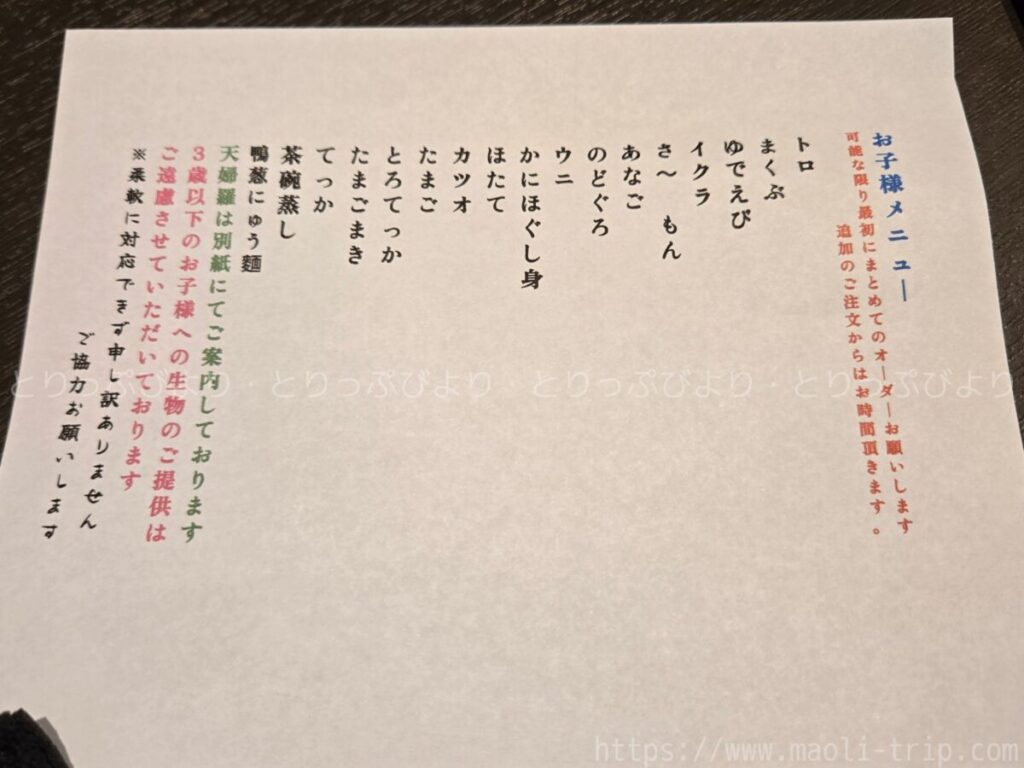 お子様メニュー
可能な限り最初にまとめてのオーダーお願いします
追加のご注文からはお時間頂きます。
トロ
まくぶ
ゆでえび
イクラ
さ～もん
あなご
のどぐろ
ウニ
かにほぐし身
ほたて
カツオ
たまご
とろてっか
たまごまき
てっか
茶碗蒸し
鴨葱にゅう麺
天婦羅は別紙にてご案内しております
３歳以下のお子様への生物のご提供は
ご遠慮させていただいております
※柔軟に対応できず申し訳ありません
ご協力お願いします
とりっぷびより・とりっぷびより・とりっぷびより・とりっぷびより
https://www.maoli-trip.com/